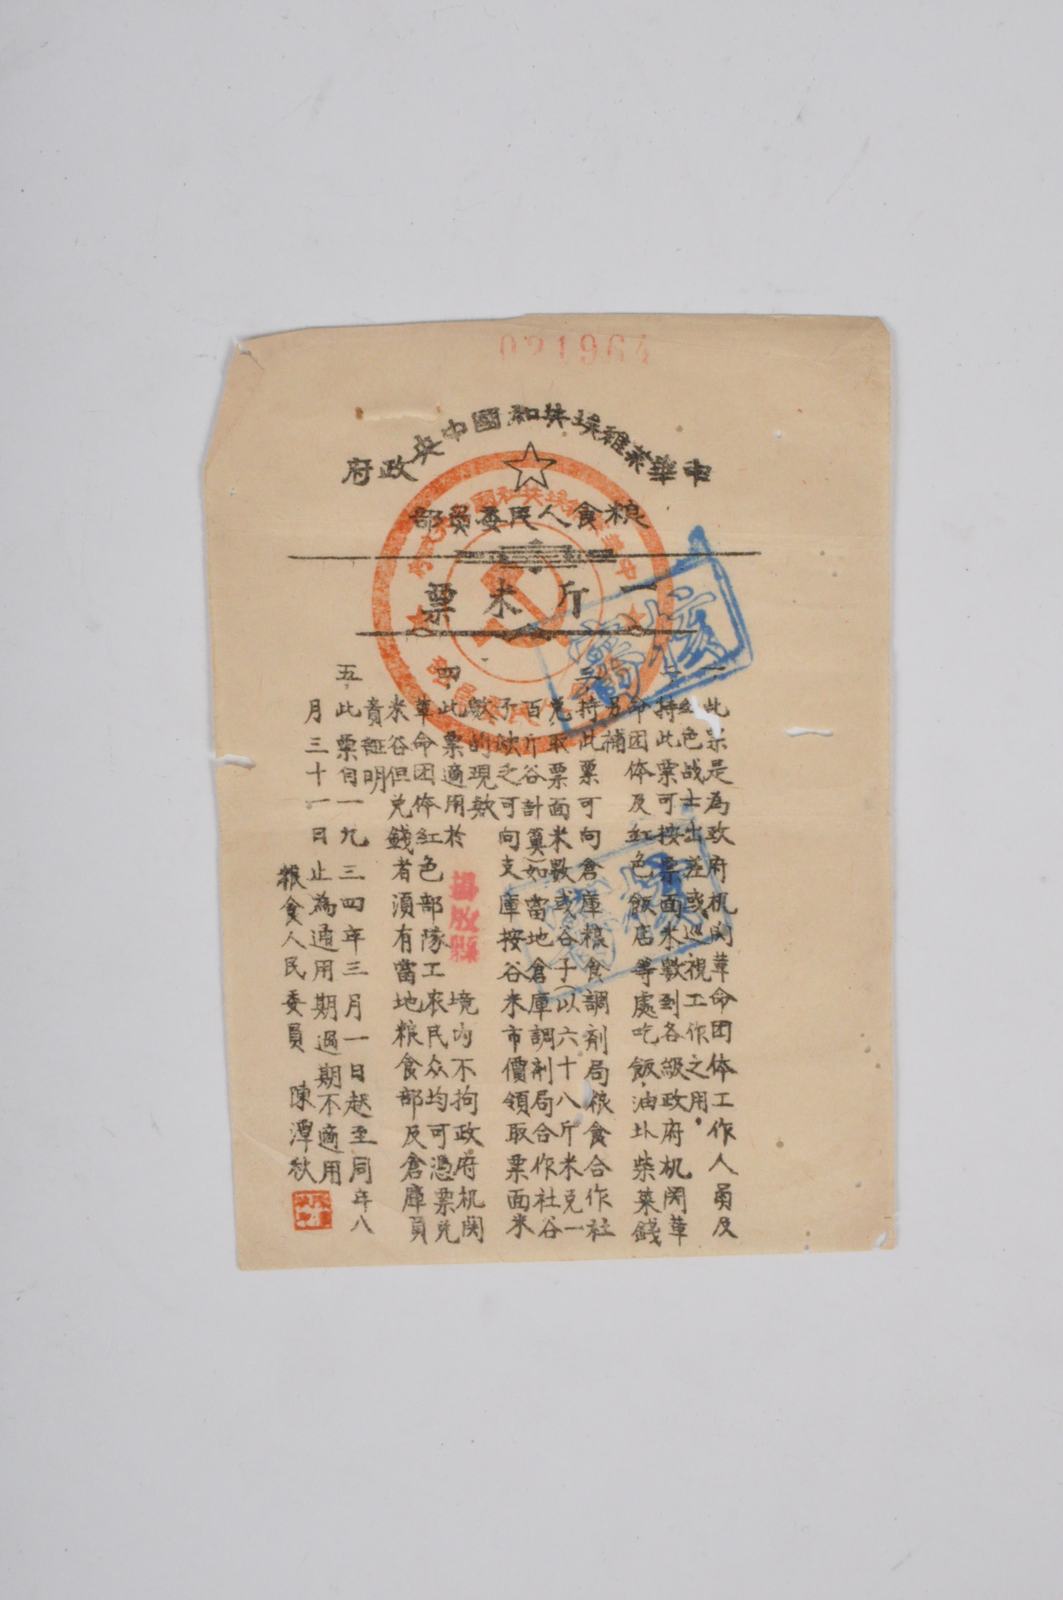 021964
中華蘇維埃共和國中央政府
粮食人民委員部
一斤米票
一此票是為政府机関革命团体工作人員及
紅色战士出差或巡視工作之用
二持此票可按票面米數到各級政府机関革
命团体及紅色飯店等處吃飯油圤柴菜錢
另補
三持此票可向倉庫粮食調剂局粮食合作社
兌取票面米數或谷子（以六十八斤米克一
百斤谷計算）如當地倉庫調剂局合作社谷
子缺乏可向支庫按谷米市價領取票面米
數的現欵
四此票適用於 境内不拘政府机関
革命团体紅色部隊工农民众均可憑票兌
米谷但兌錢者須有當地粮食部及倉庫員
責証明
五此票自一九三四年三月一日起至同年八
月三十一日止為通用期過期不適用
粮食人民委員 陳潭秋
核
核